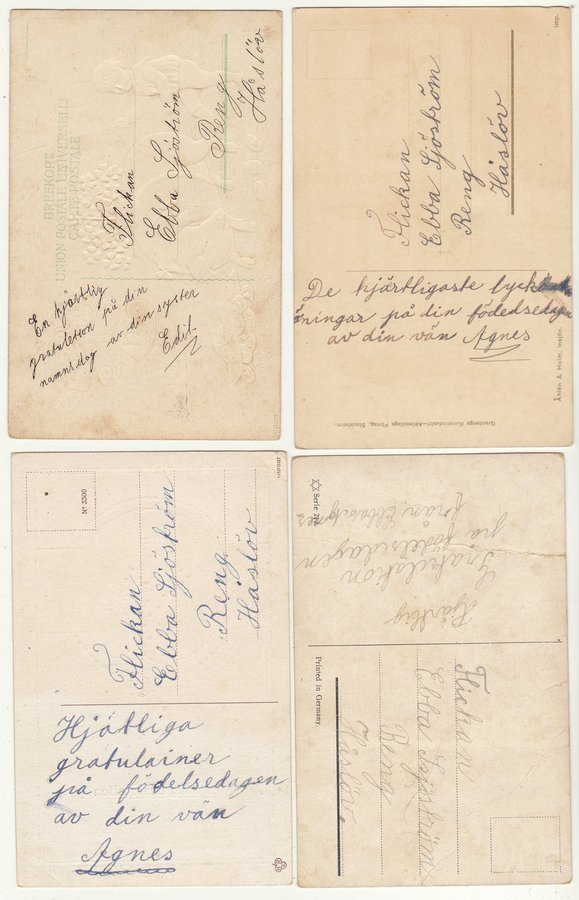 BREFKORT
UNION POSTALE UNIVERSELLE
CARTE POSTALE
Flickan
Ebba Sjöström
Reng
Håslöv
En hjärtlig
gratulation på din
namnsdag av din syster
Edit
Import
Imp.
Flickan
Ebba Sjöström
Reng
Håslöv
De hjärtligaste lyckönsk
ningar på din födedsedagen
av din vän Agnes
Åhlén & Holm, Insjön.
Granbergs Konstindustri-Aktiebolags Förlag, Stockholm.
IMPORT
Nº 3390
Flickan
Ebba Sjöström
Reng
Håslöv
Hjätliga
gratulainer
på födelsedagen
av din vän
Agnes
Serie
Hjärtlig
Gratulation
på födelsedagen
från
Printed in Germany.
Flickan
Ebba Sjöström
Reng
Håslöv